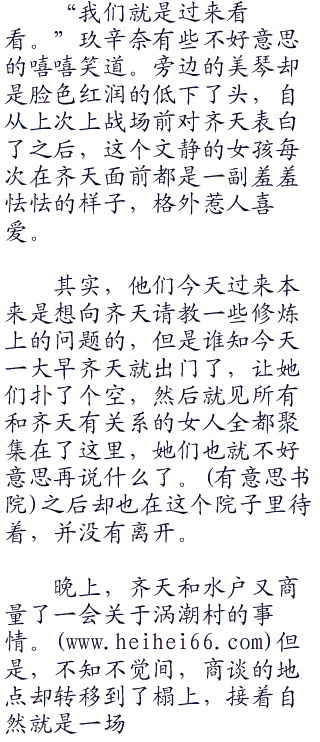 “我们就是过来看
看。”玖辛奈有些不好意思
的嘻嘻笑道。旁边的美琴却
是脸色红润的低下了头，自
从上次上战场前对齐天表白
了之后，这个文静的女孩每
次在齐天面前都是一副羞羞
怯怯的样子，格外惹人喜
爱。
其实，他们今天过来本
来是想向齐天请教一些修炼
上的问题的，但是谁知今天
一大早齐天就出门了，让她
们扑了个空，然后就见所有
和齐天有关系的女人全都聚
集在了这里，她们也就不好
意思再说什么了。(有意思书
院)之后却也在这个院子里待
着，并没有离开。
晚上，齐天和水户又商
量了一会关于涡潮村的事
情。(www.heihei66.com)但
是，不知不觉间，商谈的地
点却转移到了榻上，接着自
然就是一场